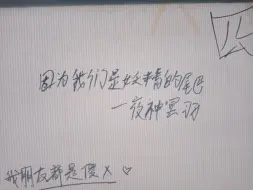 因为我们是妖精的尾巴
一夜神冥羽
我朋友都是傻X